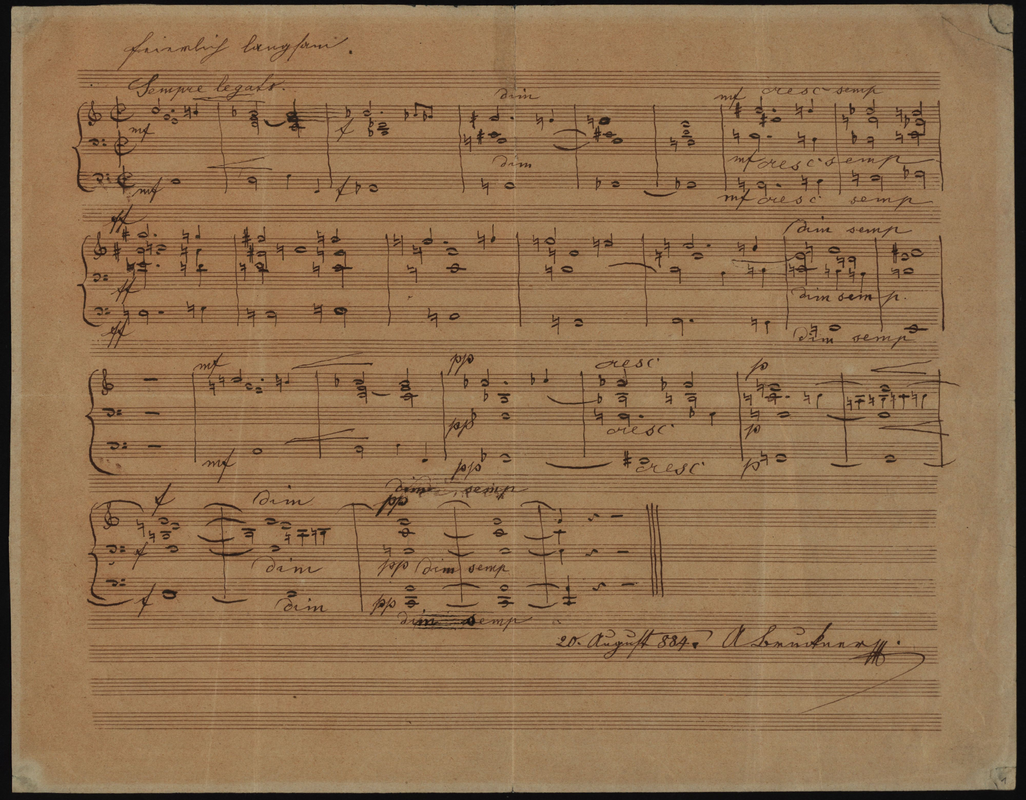 feierlich langsam.
Sempre legato.
dim mf cresc semp
mf f
dim mf cresc semp
mf f mf cresc semp
ff dim semp
ff dim semp.
ff dim semp
mf pp cresc p
pp cresc p
mf pp cresc p
f dim dim semp
pp
f dim pp dim semp
f dim pp
dim semp
20. August 884. A Bruckner